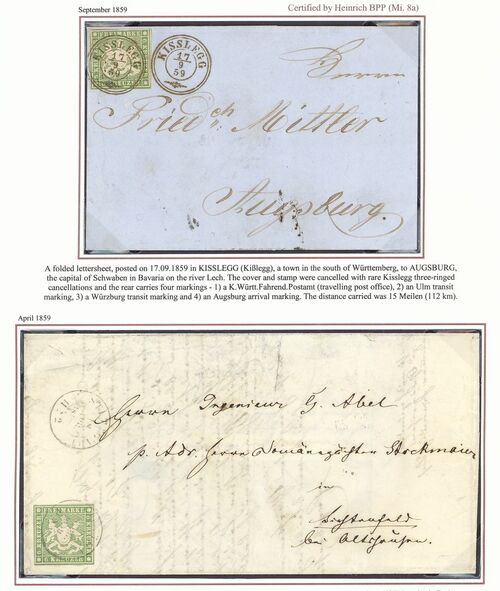 September 1859
Certified by Heinrich BPP (Mi. 8a)
KISSLEGG
17
9
59
KISSLEGG
17
9
59
Herrn
Friedch Mittler
Augsburg.
A folded lettersheet, posted on 17.09.1859 in KISSLEGG (Kißlegg), a town in the south of Württemberg, to AUGSBURG,
the capital of Schwaben in Bavaria on the river Lech. The cover and stamp were cancelled with rare Kisslegg three-ringed
cancellations and the rear carries four markings - 1) a K.Württ.Fahrend.Postamt (travelling post office), 2) an Ulm transit
marking, 3) a Würzburg transit marking and 4) an Augsburg arrival marking. The distance carried was 15 Meilen (112 km).
April 1859
Herrn Ingenieur G. Abel
p. Adr. Herrn Domänenpächter Stockmaier
in
Lichtenfeld
bei Altshausen.
FREIMARKE
6 KREUZER